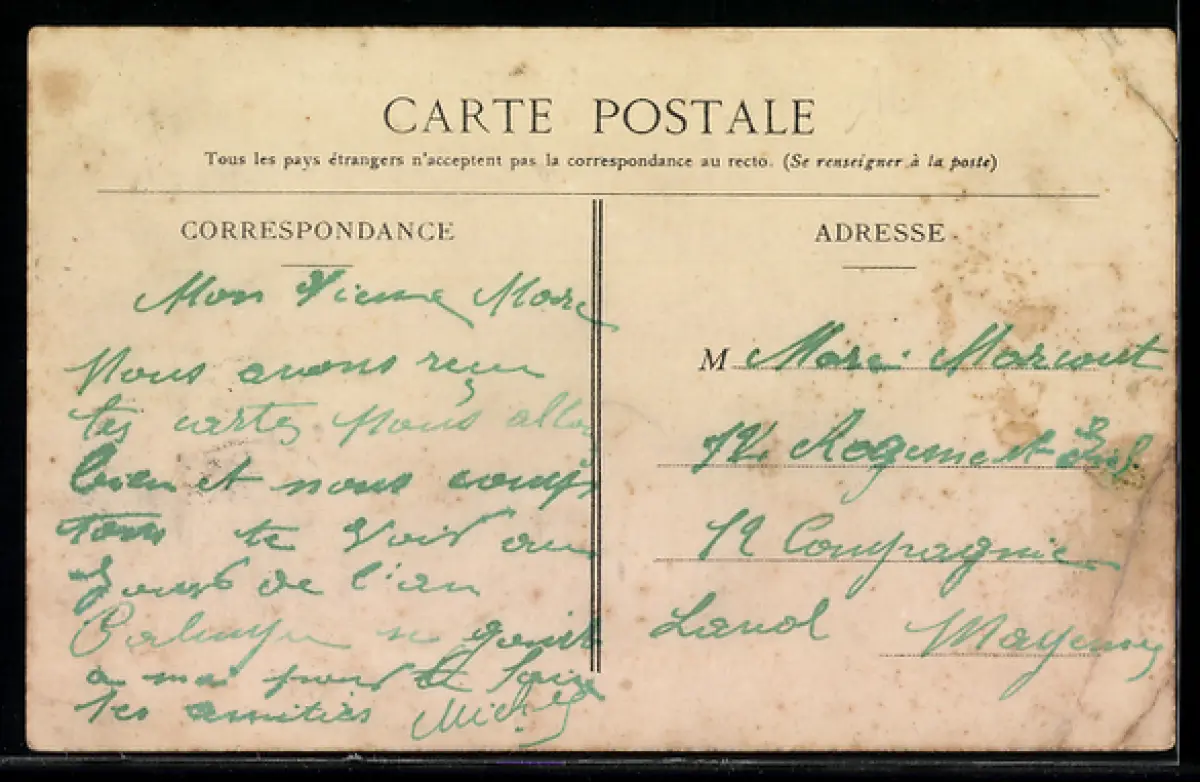 CARTE POSTALE
Tous les pays étrangers n'acceptent pas la correspondance au recto. (Se renseigner à la poste)
CORRESPONDANCE
Mon Vieux Marc
Nous avons reçu
tes cartes Nous allons
bien et nous comp
tons te voir au
Jours de l'an
se joint
a moi pour te faire
ses amitiés Michel
ADRESSE
M Marc Marcout
Regiment
12 Compagnie
Laval Mayenne